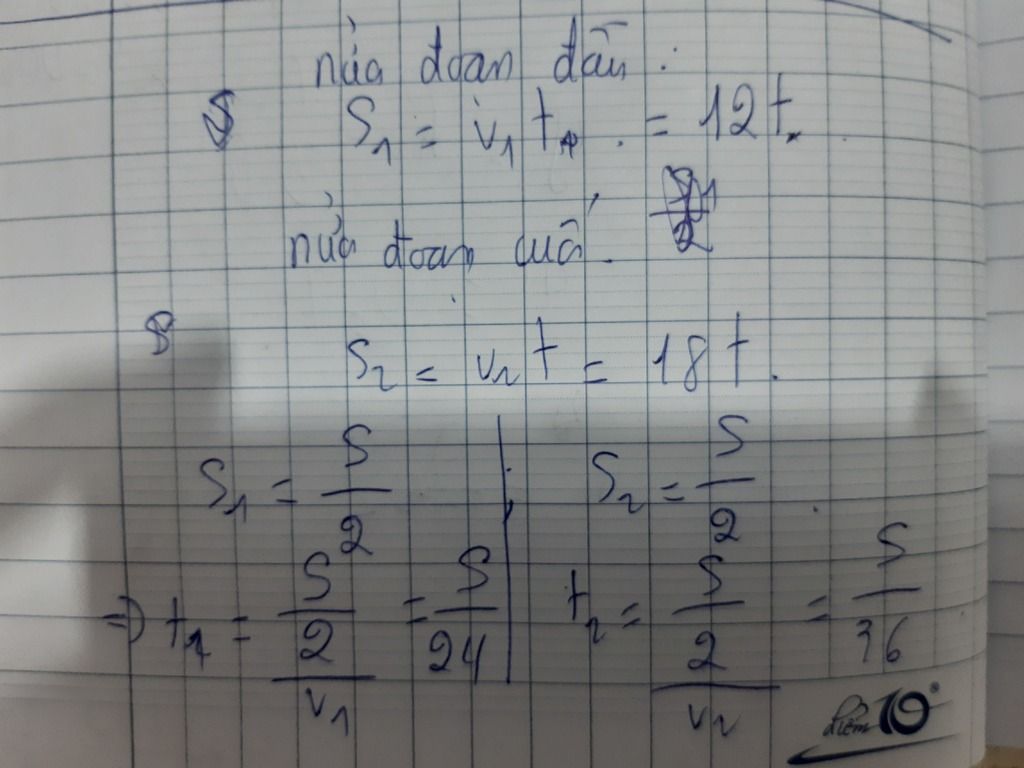 nửa đoan đầu :
S₁ = v₁ t₁ . = 12 t.
nửa đoan cuố.
S₂ = v₂ t = 18 t.
S₁ = S/2 ; S₂ = S/2
=) t₁ = (S/2)/v₁ = S/24 t₂ = (S/2)/v₂ = S/36
điểm 10